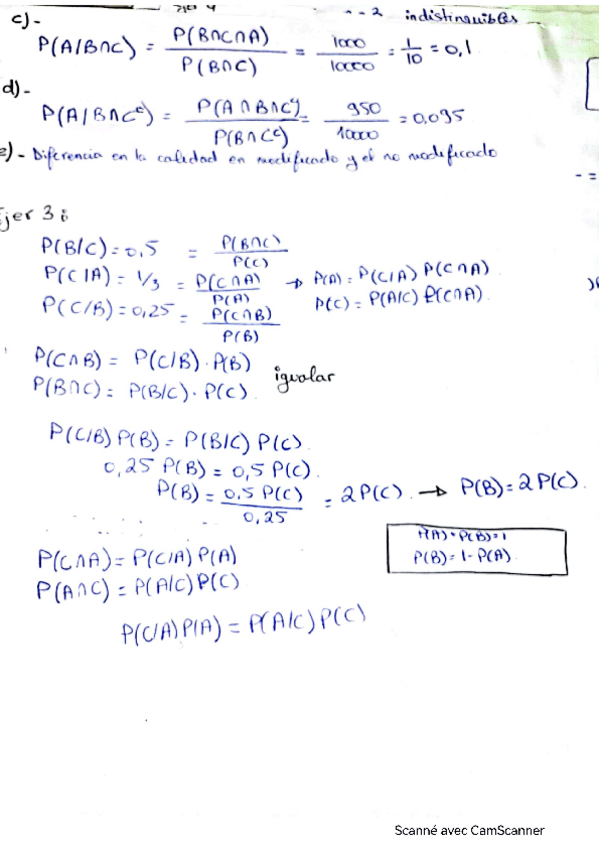 c)-
indistinguibles
P(A/B∩C) = P(B∩C∩A) / P(B∩C) = 1000 / 10000 = 1/10 = 0,1
d)-
P(A/B∩Cᶜ) = P(A∩B∩Cᶜ) / P(B∩Cᶜ) = 950 / 10000 = 0,095
e)- Diferencia en la calidad en modificado y el no modificado
Ejer 3:
P(B/C) = 0,5 = P(B∩C) / P(C)
P(C/A) = 1/3 = P(C∩A) / P(A) → P(A) = P(C/A) P(C∩A)
P(C/B) = 0,25 = P(C∩B) / P(B)
P(C) = P(A/C) P(C∩A)
P(C∩B) = P(C/B) · P(B)
P(B∩C) = P(B/C) · P(C)
igualar
P(C/B) P(B) = P(B/C) P(C)
0,25 P(B) = 0,5 P(C)
P(B) = 0,5 P(C) / 0,25 = 2P(C) → P(B) = 2P(C)
P(A) + P(B) = 1
P(B) = 1 - P(A)
P(C∩A) = P(C/A) P(A)
P(A∩C) = P(A/C) P(C)
P(C/A) P(A) = P(A/C) P(C)
Scanné avec CamScanner